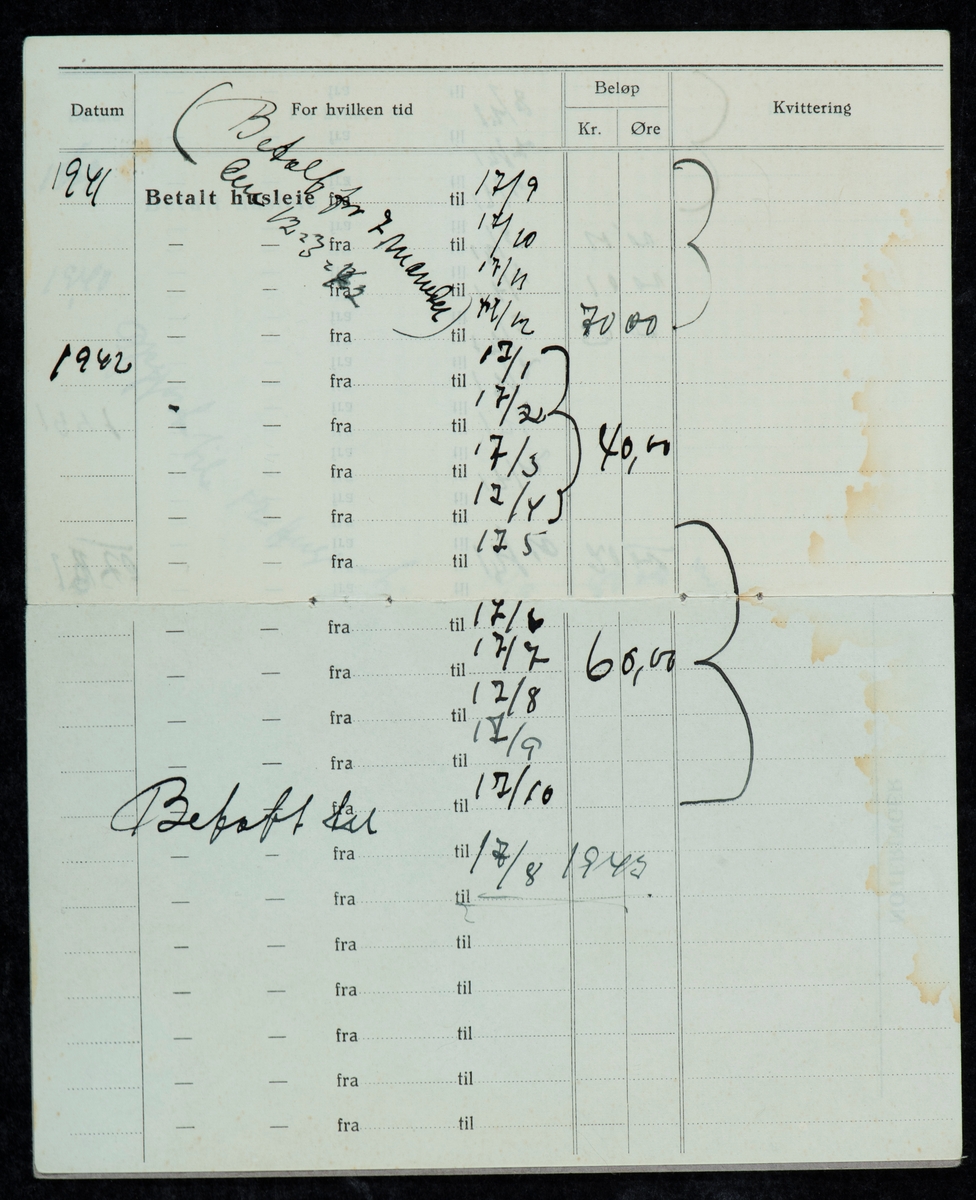 Datum For hvilken tid Beløp Kvittering
Kr. Øre
(Betalt for 7 Maaneder)
1941 Betalt husleie fra til 17/9
— — fra til 17/10
— — fra til 17/11
— — fra til 17/12 70 00
1942 — — fra til 17/1
— — fra til 17/2
— — fra til 17/3 40,00
— — fra til 17/4
— — fra til 17 5
— — fra til 17/6
— — fra til 17/7 60,00
— — fra til 17/8
— — fra til 17/9
— — fra til 17/10
Betalt til
— — fra til 17/8 1943
— — fra til
— — fra til
— — fra til
— — fra til
— — fra til
— — fra til